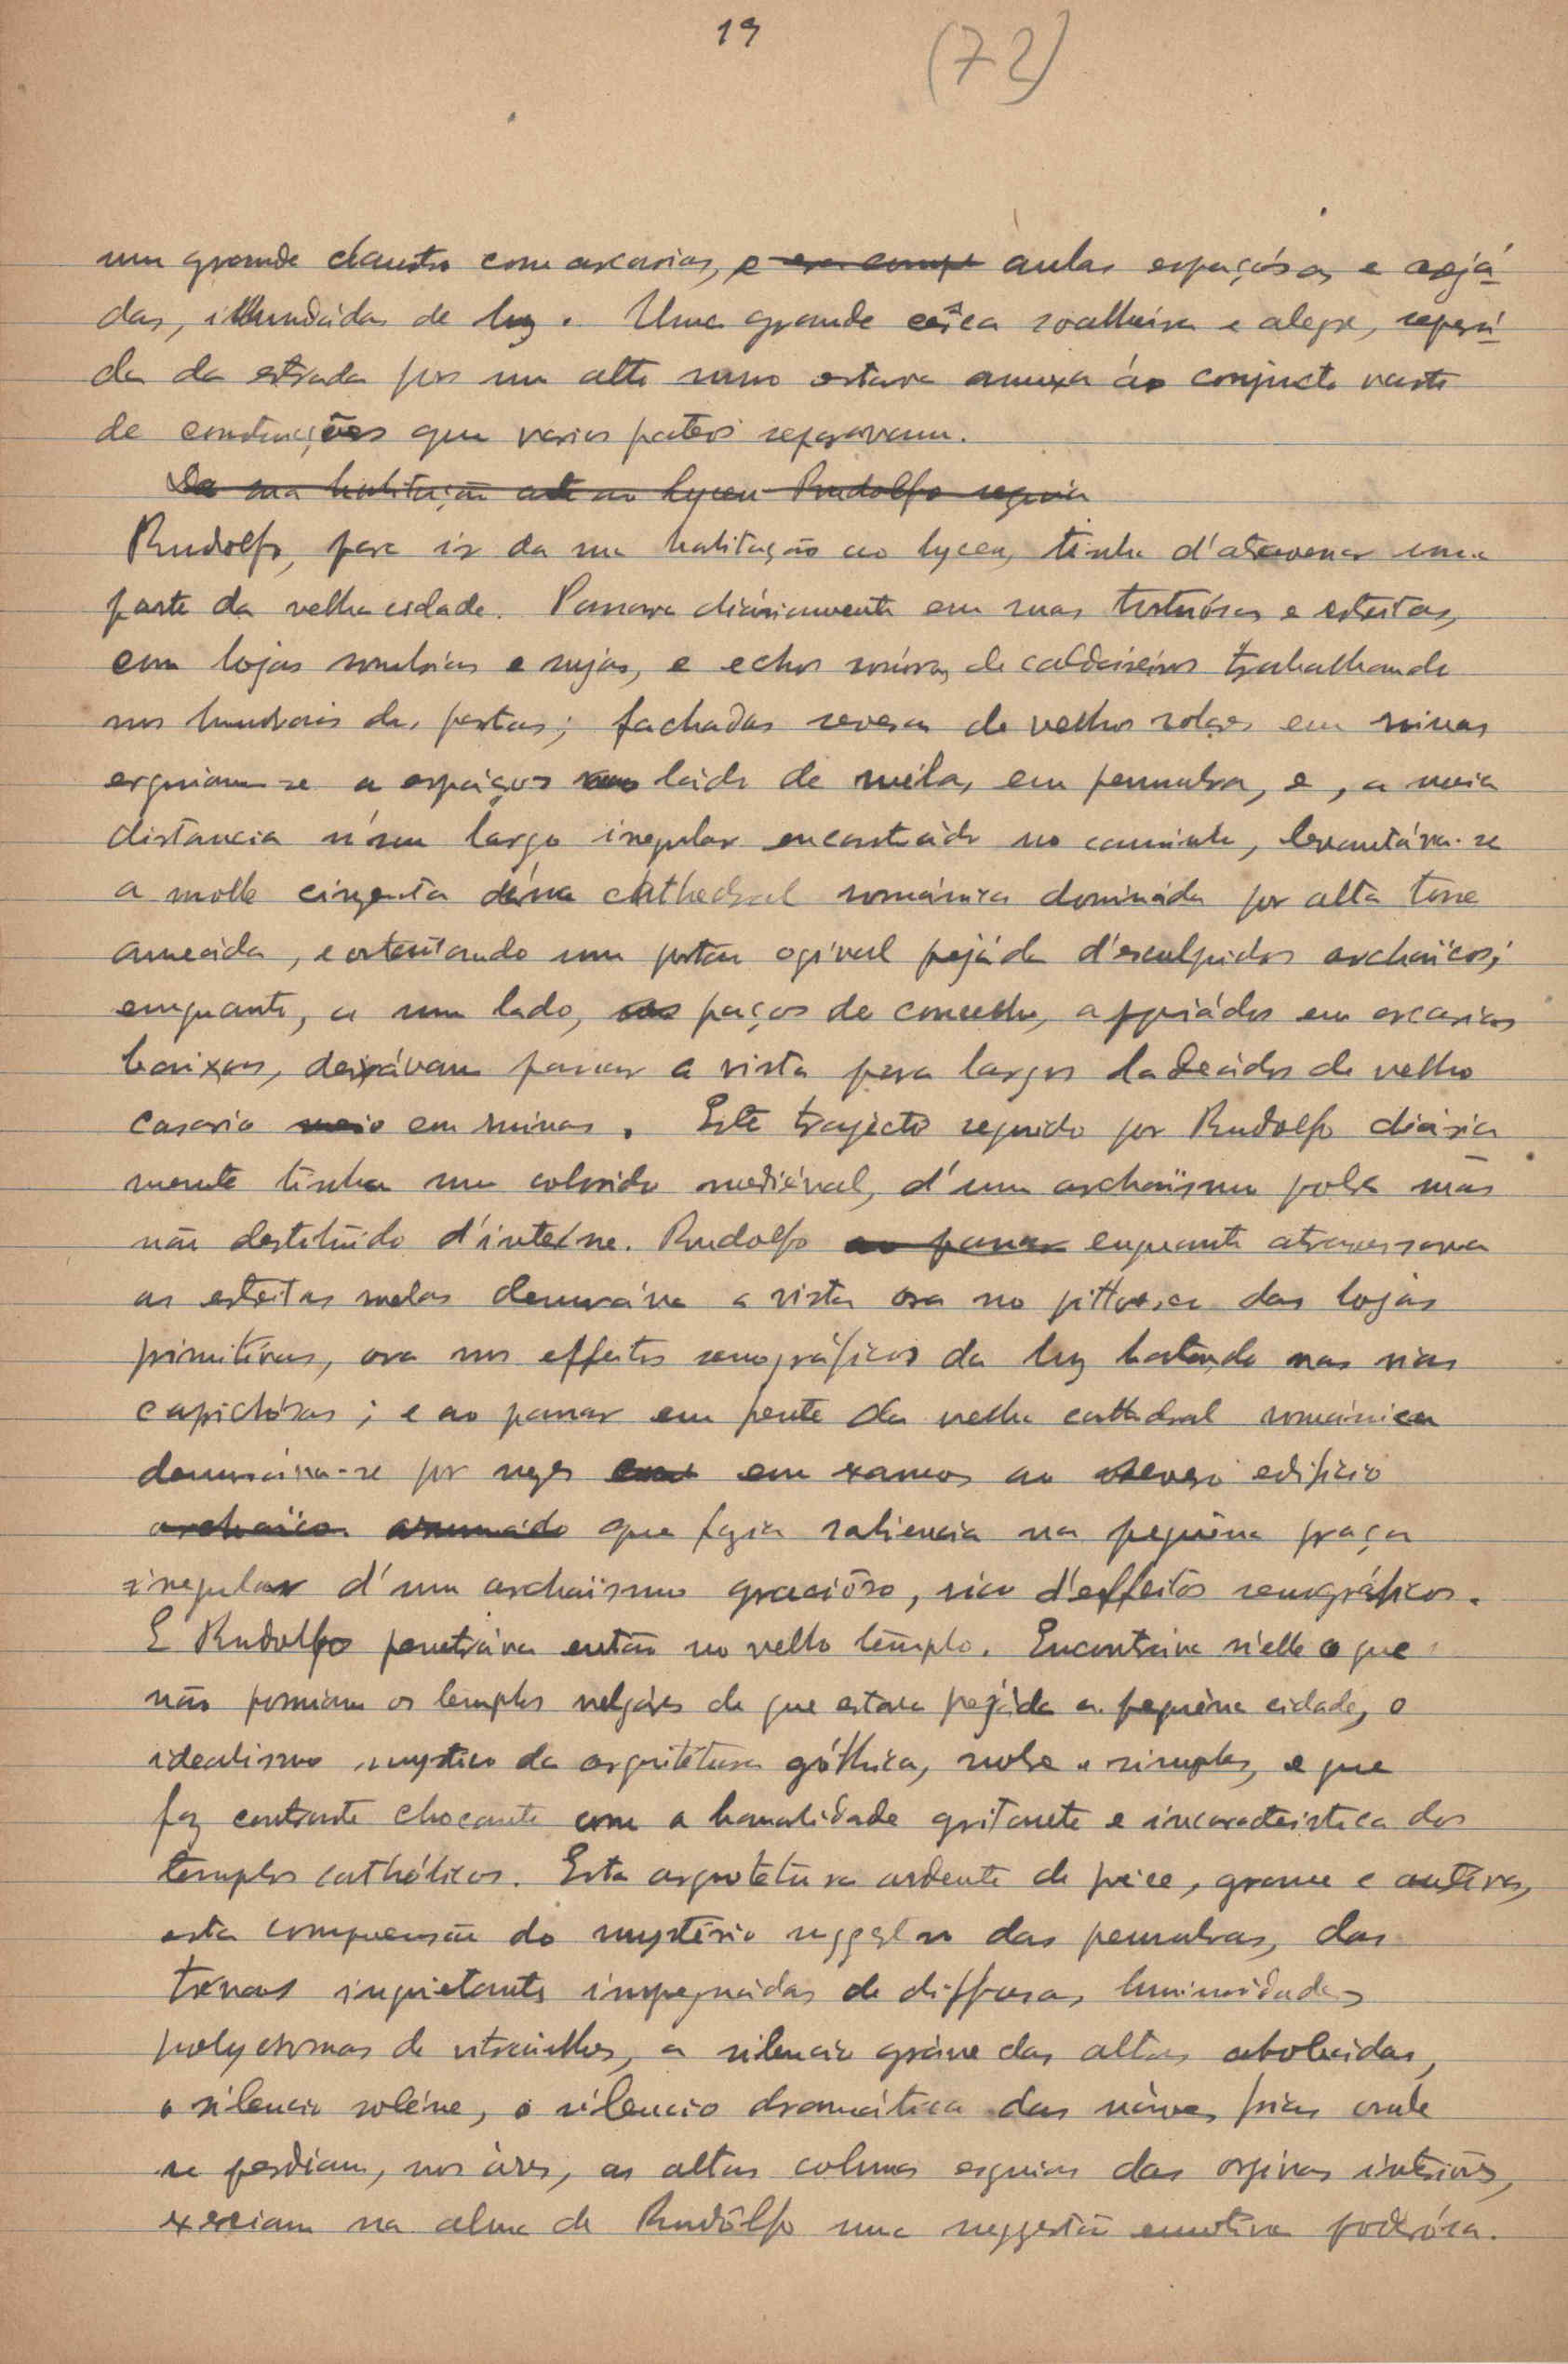 19 (72)
um grande claustro com arcarias, e era compt aulas espaçósas e arejá
das, illundádas de luz. Uma grande cêrca soalheira e alegre, separá
da da estrada por um alto muro estava anexa áo conjucto vasto
de construções que varios pateos separavam.
Da sua habitação até ao lyceu Rudolfo seguia
Rudolfo, para ir da sua habitação ao lyceu, tinha d'atravessar uma
parte da velha cidade. Passava diáriamente em ruas tortuósas e estreitas,
com lojas sombrias e sujas, e echos sonóros de caldeireiros trabalhando
nos humbrais das portas; fachadas severas de velhos solares em ruinas
erguiam-se a espáços ao lado de viélas em penumbra, e, a meia
distancia n'um largo irregular encontrádo no caminho, levantáva-se
a molle cinzenta dúma cathedral românica dominàda por alta torre
ameáda, e ostentando um portão ogival pejádo d'esculpidos archaïcos;
emquanto, a um lado, os paços do concelho, appoiádos em arcarias
baixas, deixávam passar a vista para largos ladeádos de velho
casario meio em ruinas. Este trajecto seguido por Rudolfo diária
mente tinha um colorido mediéval, d'um archaïsmo pobre mas
não destituido d'intéresse. Rudolfo ao passar enquanto atravessava
as estreitas ruelas demoráva a vista ora no pittoresco das lojas
primitívas, ora nos effeitos scenográficos da luz batendo nas rias
caprichósas; e ao passar em frente da velha cathedral románica
demoráva-se por vezes em examos ao severo edificio
archaïco arruinado que fazia saliencia na pequêna praça
irregular d'um archaïsmo graciôso, rico d'effeitos scenográficos.
E Rudolfo penetráva então no velho têmplo. Encontráva n'elle o que
não possuiam os templos vulgáres de que estava pejáda a pequêna cidade, o
idealismo mystico da arquitétura góthica, nobre e simples, e que
faz contraste chocante com a banalidade gritante e incaracteristica dos
templos cathólicos. Esta arquitetura ardente de préce, grave e austéra,
esta compreensão do mystério suggestivo das penumbras, das
trévas inquietantes impregnádas de diffusas luminosidades
polycromas de vitrailhes, o silencio gráve das altas abobádas,
o silencio soléne, o silencio dramático das náves frias onde
se perdiam, nos áres, as altas colunas esguias das orgivas interióres,
exerciam na alma de Rudôlfo uma suggestão emotiva poderósa.